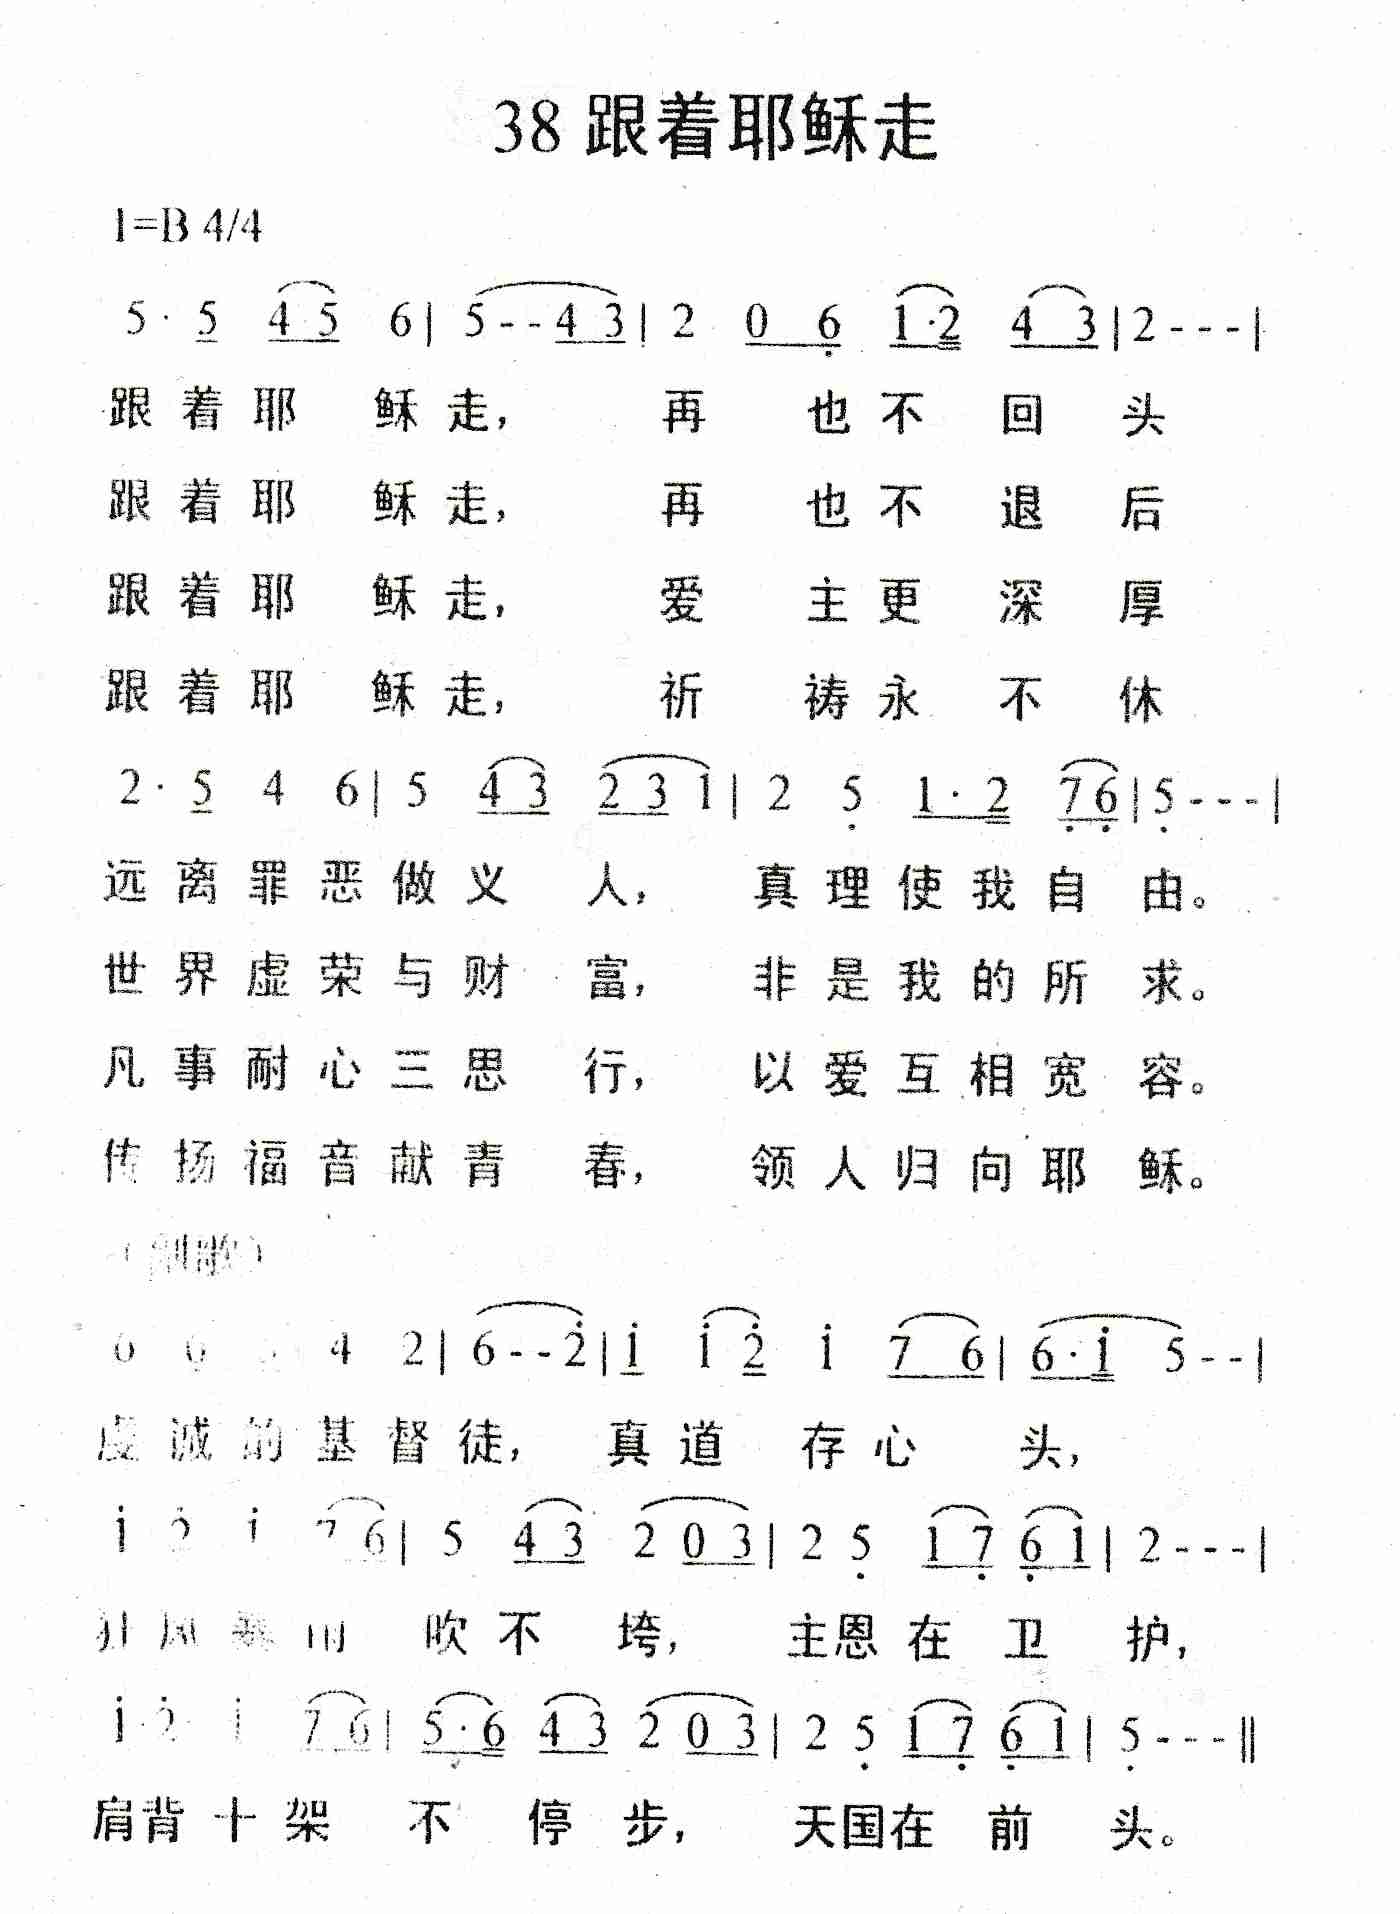 38 跟着耶稣走
1=B 4/4
5· 5 4 5 6| 5--4 3| 2 0 6 1·2 4 3|2---|
跟着耶 稣走， 再 也不 回 头
跟着耶 稣走， 再 也不 退 后
跟着耶 稣走， 爱 主更 深 厚
跟着耶 稣走， 祈 祷永 不 休
2· 5 4 6| 5 4 3 2 3 1| 2 5 1· 2 7 6|5---|
远离罪恶做义 人， 真理使我自 由。
世界虚荣与财 富， 非是我的所 求。
凡事耐心三思 行， 以爱互相宽 容。
传扬福音献青 春， 领人归向耶 稣。
（副歌）
6 6 4 2| 6--2|1 1 2 1 7 6|6·1 5--|
虔诚的基督徒， 真道 存心 头，
1 2 1 7 6| 5 4 3 2 0 3| 2 5 1 7 6 1| 2---|
狂风暴雨 吹不 垮， 主恩在 卫 护，
1 2 1 7 6| 5·6 4 3 2 0 3| 2 5 1 7 6 1| 5---‖
肩背十架 不 停 步， 天国在 前 头。